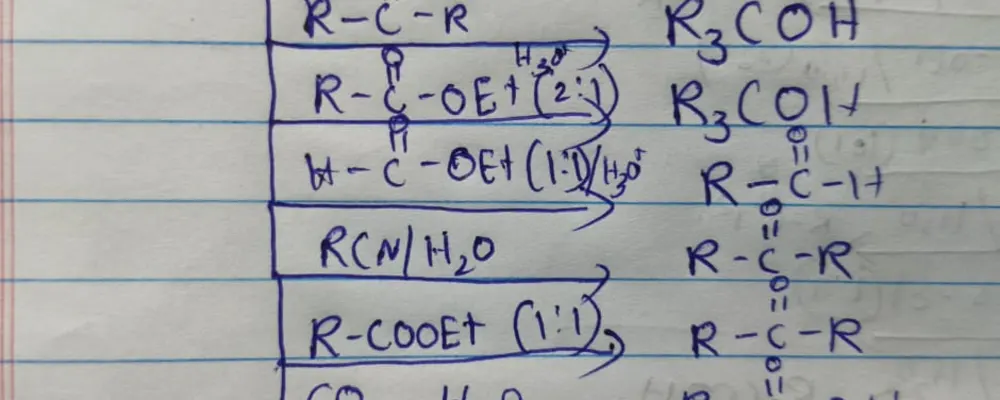 R-C-R R₃COH
O H₃O⁺
||
R-C-OEt (2:1) R₃COH
O O
|| ||
H-C-OEt (1:1)/H₃O⁺ R-C-H
O
||
RCN/H₂O R-C-R
O
||
R-COOEt (1:1) R-C-R
O
||